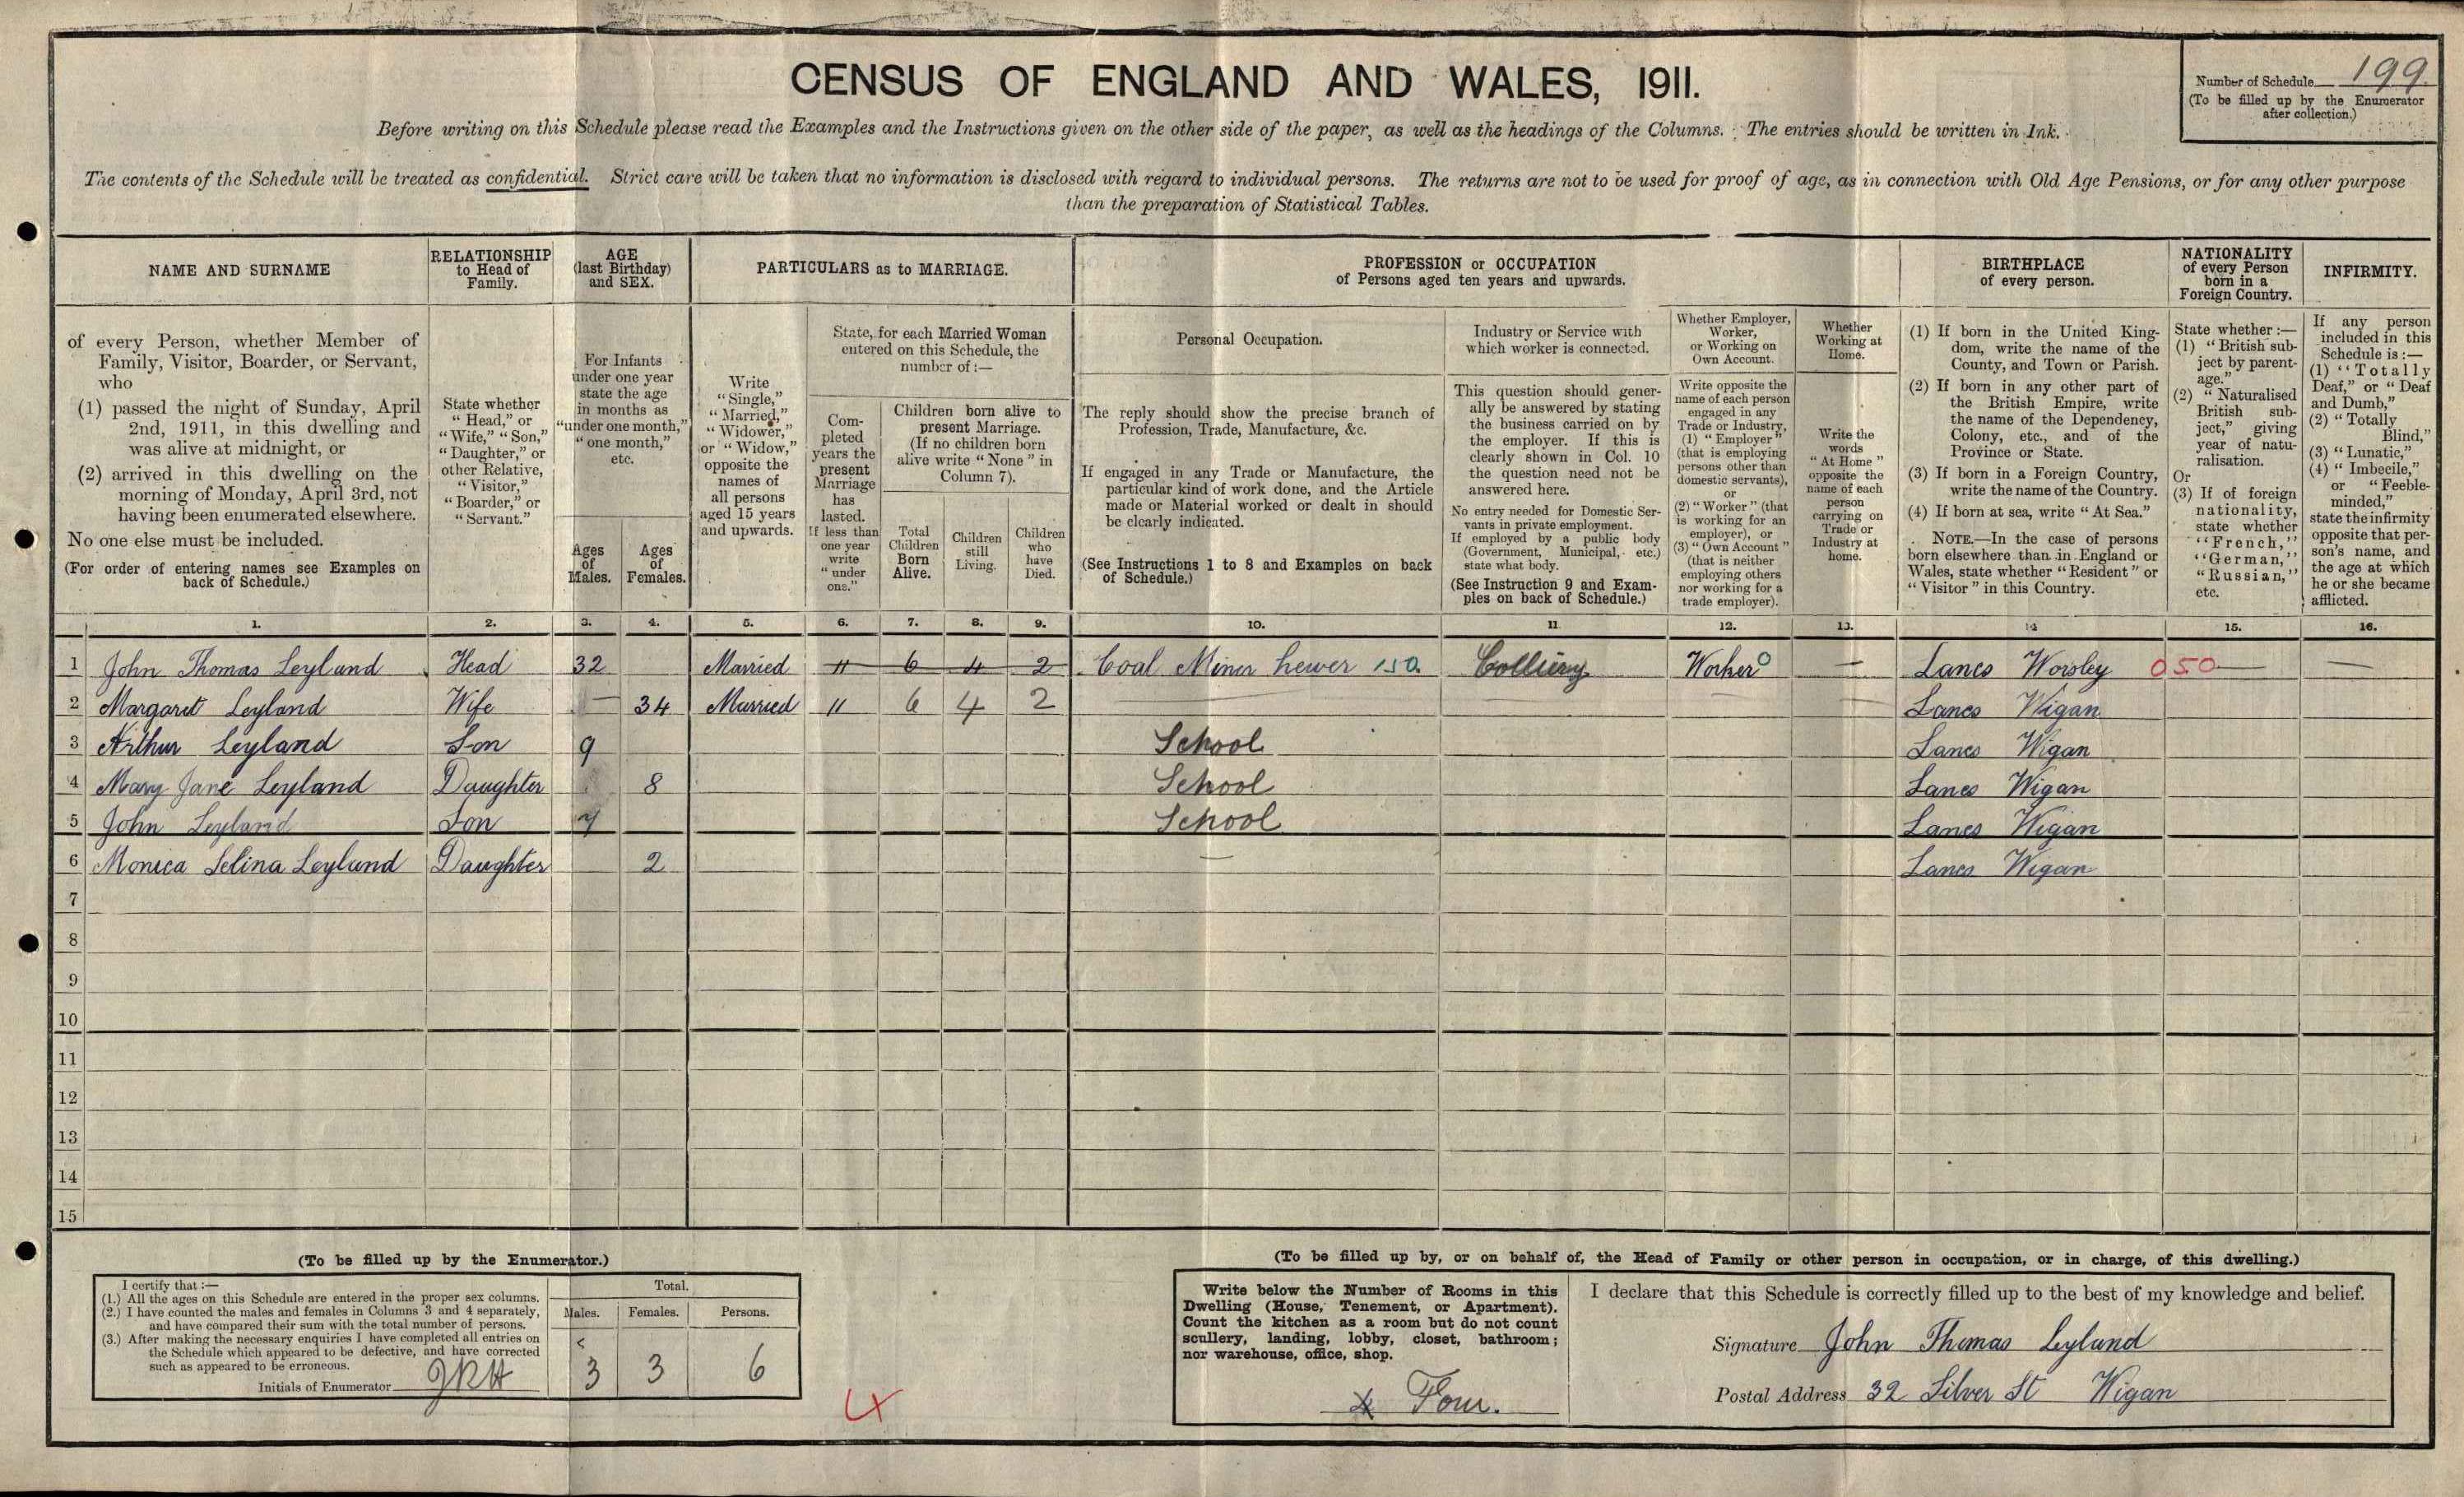 CENSUS OF ENGLAND AND WALES, 1911.
Number of Schedule 199
(To be filled up by the Enumerator
after collection.)
Before writing on this Schedule please read the Examples and the Instructions given on the other side of the paper, as well as the headings of the Columns. The entries should be written in Ink.
The contents of the Schedule will be treated as confidential. Strict care will be taken that no information is disclosed with regard to individual persons. The returns are not to be used for proof of age, as in connection with Old Age Pensions, or for any other purpose
than the preparation of Statistical Tables.
NAME AND SURNAME
of every Person, whether Member of
Family, Visitor, Boarder, or Servant,
who
(1) passed the night of Sunday, April
2nd, 1911, in this dwelling and
was alive at midnight, or
(2) arrived in this dwelling on the
morning of Monday, April 3rd, not
having been enumerated elsewhere.
No one else must be included.
(For order of entering names see Examples on
back of Schedule.)
RELATIONSHIP
to Head of
Family.
State whether
"Head," or
"Wife," "Son,"
"Daughter," or
other Relative,
"Visitor,"
"Boarder," or
"Servant."
AGE
(last Birthday)
and SEX.
For Infants
under one year
state the age
in months as
"under one month,"
"one month,"
etc.
Ages
of
Males.
Ages
of
Females.
PARTICULARS as to MARRIAGE.
Write
"Single,"
"Married,"
"Widower,"
or "Widow,"
opposite the
names of
all persons
aged 15 years
and upwards.
State, for each Married Woman
entered on this Schedule, the
number of :—
Com-
pleted
years the
present
Marriage
has
lasted.
If less than
one year
write
"under
one."
Children born alive to
present Marriage.
(If no children born
alive write "None" in
Column 7).
Total
Children
Born
Alive.
Children
still
Living.
Children
who
have
Died.
PROFESSION or OCCUPATION
of Persons aged ten years and upwards.
Personal Occupation.
The reply should show the precise branch of
Profession, Trade, Manufacture, &c.
If engaged in any Trade or Manufacture, the
particular kind of work done, and the Article
made or Material worked or dealt in should
be clearly indicated.
(See Instructions 1 to 8 and Examples on back
of Schedule.)
Industry or Service with
which worker is connected.
This question should gener-
ally be answered by stating
the business carried on by
the employer. If this is
clearly shown in Col. 10
the question need not be
answered here.
No entry needed for Domestic Ser-
vants in private employment.
If employed by a public body
(Government, Municipal, etc.)
state what body.
(See Instruction 9 and Exam-
ples on back of Schedule.)
Whether Employer,
Worker,
or Working on
Own Account.
Write opposite the
name of each person
engaged in any
Trade or Industry,
(1) "Employer"
(that is employing
persons other than
domestic servants),
or
(2) "Worker" (that
is working for an
employer), or
(3) "Own Account"
(that is neither
employing others
nor working for a
trade employer).
Whether
Working at
Home.
Write the
words
"At Home"
opposite the
name of each
person
carrying on
Trade or
Industry at
home.
BIRTHPLACE
of every person.
(1) If born in the United King-
dom, write the name of the
County, and Town or Parish.
(2) If born in any other part of
the British Empire, write
the name of the Dependency,
Colony, etc., and of the
Province or State.
(3) If born in a Foreign Country,
write the name of the Country.
(4) If born at sea, write "At Sea."
NOTE.—In the case of persons
born elsewhere than in England or
Wales, state whether "Resident" or
"Visitor" in this Country.
NATIONALITY
of every Person
born in a
Foreign Country.
State whether :—
(1) "British sub-
ject by parent-
age."
(2) "Naturalised
British sub-
ject," giving
year of natu-
ralisation.
Or
(3) If of foreign
nationality,
state whether
"French,"
"German,"
"Russian,"
etc.
INFIRMITY.
If any person
included in this
Schedule is :—
(1) "Totally
Deaf," or "Deaf
and Dumb,"
(2) "Totally
Blind,"
(3) "Lunatic,"
(4) "Imbecile,"
or "Feeble-
minded,"
state the infirmity
opposite that per-
son's name, and
the age at which
he or she became
afflicted.
1. 2. 3. 4. 5. 6. 7. 8. 9. 10. 11 12. 13. 14 15. 16.
1 John Thomas Leyland Head 32 Married 11 6 4 2 Coal Miner hewer 150. Colliery Worker 0 — Lancs Worsley 050 — —
2 Margaret Leyland Wife — 34 Married 11 6 4 2 — — — Lancs Wigan
3 Arthur Leyland Son 9 School Lancs Wigan
4 Mary Jane Leyland Daughter 8 School Lancs Wigan
5 John Leyland Son 7 School Lancs Wigan
6 Monica Selina Leyland Daughter 2 — Lancs Wigan
7
8
9
10
11
12
13
14
15
(To be filled up by the Enumerator.)
I certify that :—
(1.) All the ages on this Schedule are entered in the proper sex columns.
(2.) I have counted the males and females in Columns 3 and 4 separately,
and have compared their sum with the total number of persons.
(3.) After making the necessary enquiries I have completed all entries on
the Schedule which appeared to be defective, and have corrected
such as appeared to be erroneous.
Initials of Enumerator JRH
Total.
Males. Females. Persons.
3 3 6
4
(To be filled up by, or on behalf of, the Head of Family or other person in occupation, or in charge, of this dwelling.)
Write below the Number of Rooms in this
Dwelling (House, Tenement, or Apartment).
Count the kitchen as a room but do not count
scullery, landing, lobby, closet, bathroom;
nor warehouse, office, shop.
Four.
I declare that this Schedule is correctly filled up to the best of my knowledge and belief.
Signature John Thomas Leyland
Postal Address 32 Silver St Wigan